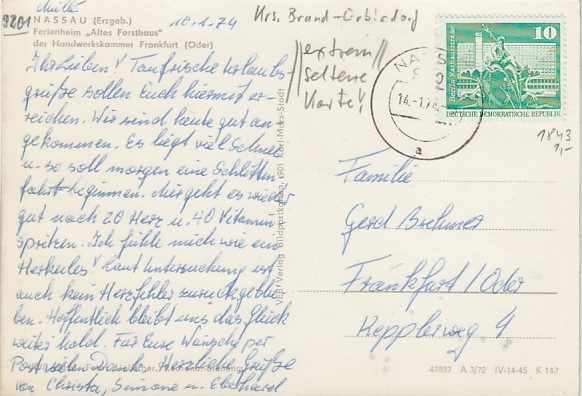 9201
NASSAU (Erzgeb.)
10.1.74
Krs. Brand-Erbisdorf
Ferienheim „Altes Forsthaus"
der Handwerkskammer Frankfurt (Oder)
extrem
seltene
Karte!
10
Berlin Rathausstraße
DEUTSCHE DEMOKRATISCHE REPUBLIK
NASS
14.-1.74
a
1843
1,-
Ihr Lieben! Taufrische Urlaubs-
grüße sollen Euch hiermit er-
reichen. Wir sind heute gut an-
gekommen. Es liegt viel Schnee
u. so soll morgen eine Schlitten
fahrt beginnen. Mir geht es wieder
gut nach 20 Herz u. 40 Vitamin
spritzen. Ich fühle mich wie ein
Herkules! Laut Untersuchung ist
auch kein Herzfehler zurückgeblie
ben. Hoffentlich bleibt uns das Glück
weiter hold. Für Eure Wünsche per
Post vielen Dank. Herzliche Grüße
von Christa, Simone u. Eberhard
VEB Verlag Bildpostkarten 901 Karl-Marx-Stadt
Familie
Gerd Brehmer
Frankfurt/Oder
Kepplerweg 4
47837 A 3/72 IV-14-45 K 142